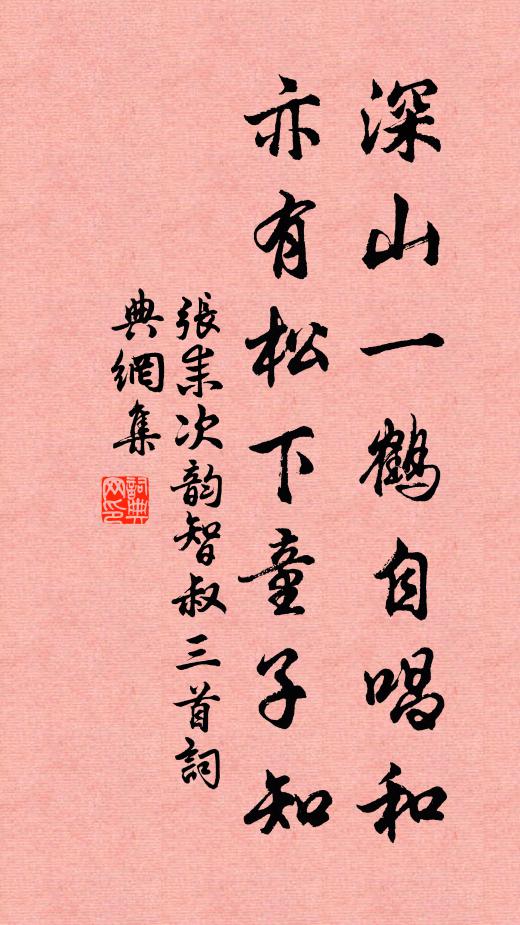 深山一鶴自唱和
亦有松下童子知
張耒次韵智叔三首詞
典網集
詞典网印